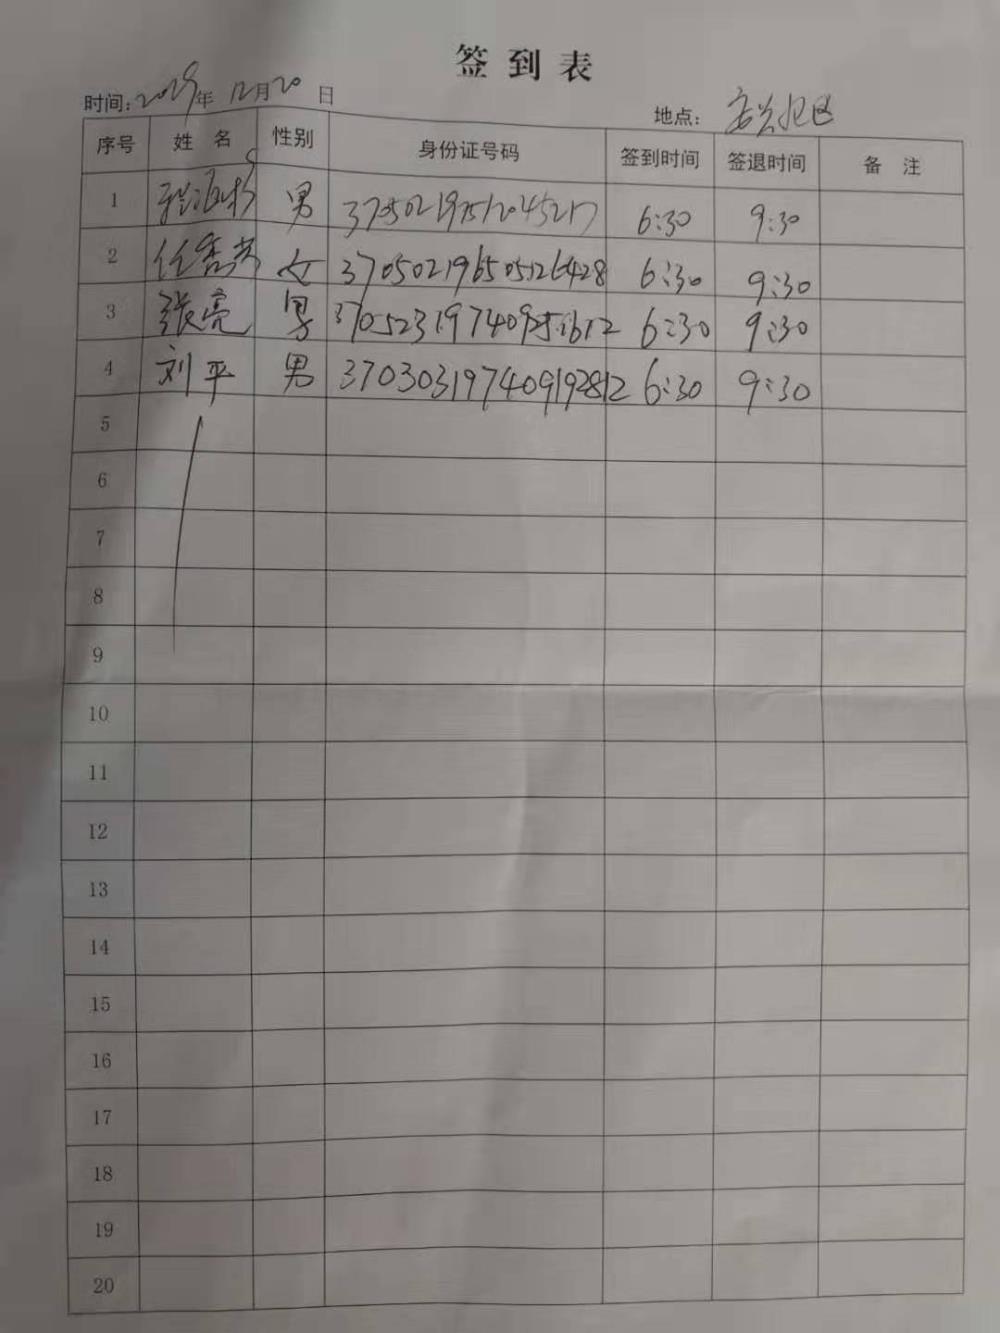 签到表
时间:2029年12月20日 地点:
序号 姓名 性别 身份证号码 签到时间 签退时间 备注
1 男 6:30 9:30
2 任秀芳 女 370502196505126428 6:30 9:30
3 张亮 男 6:30 9:30
4 刘平 男 370303197409192812 6:30 9:30
5
6
7
8
9
10
11
12
13
14
15
16
17
18
19
20